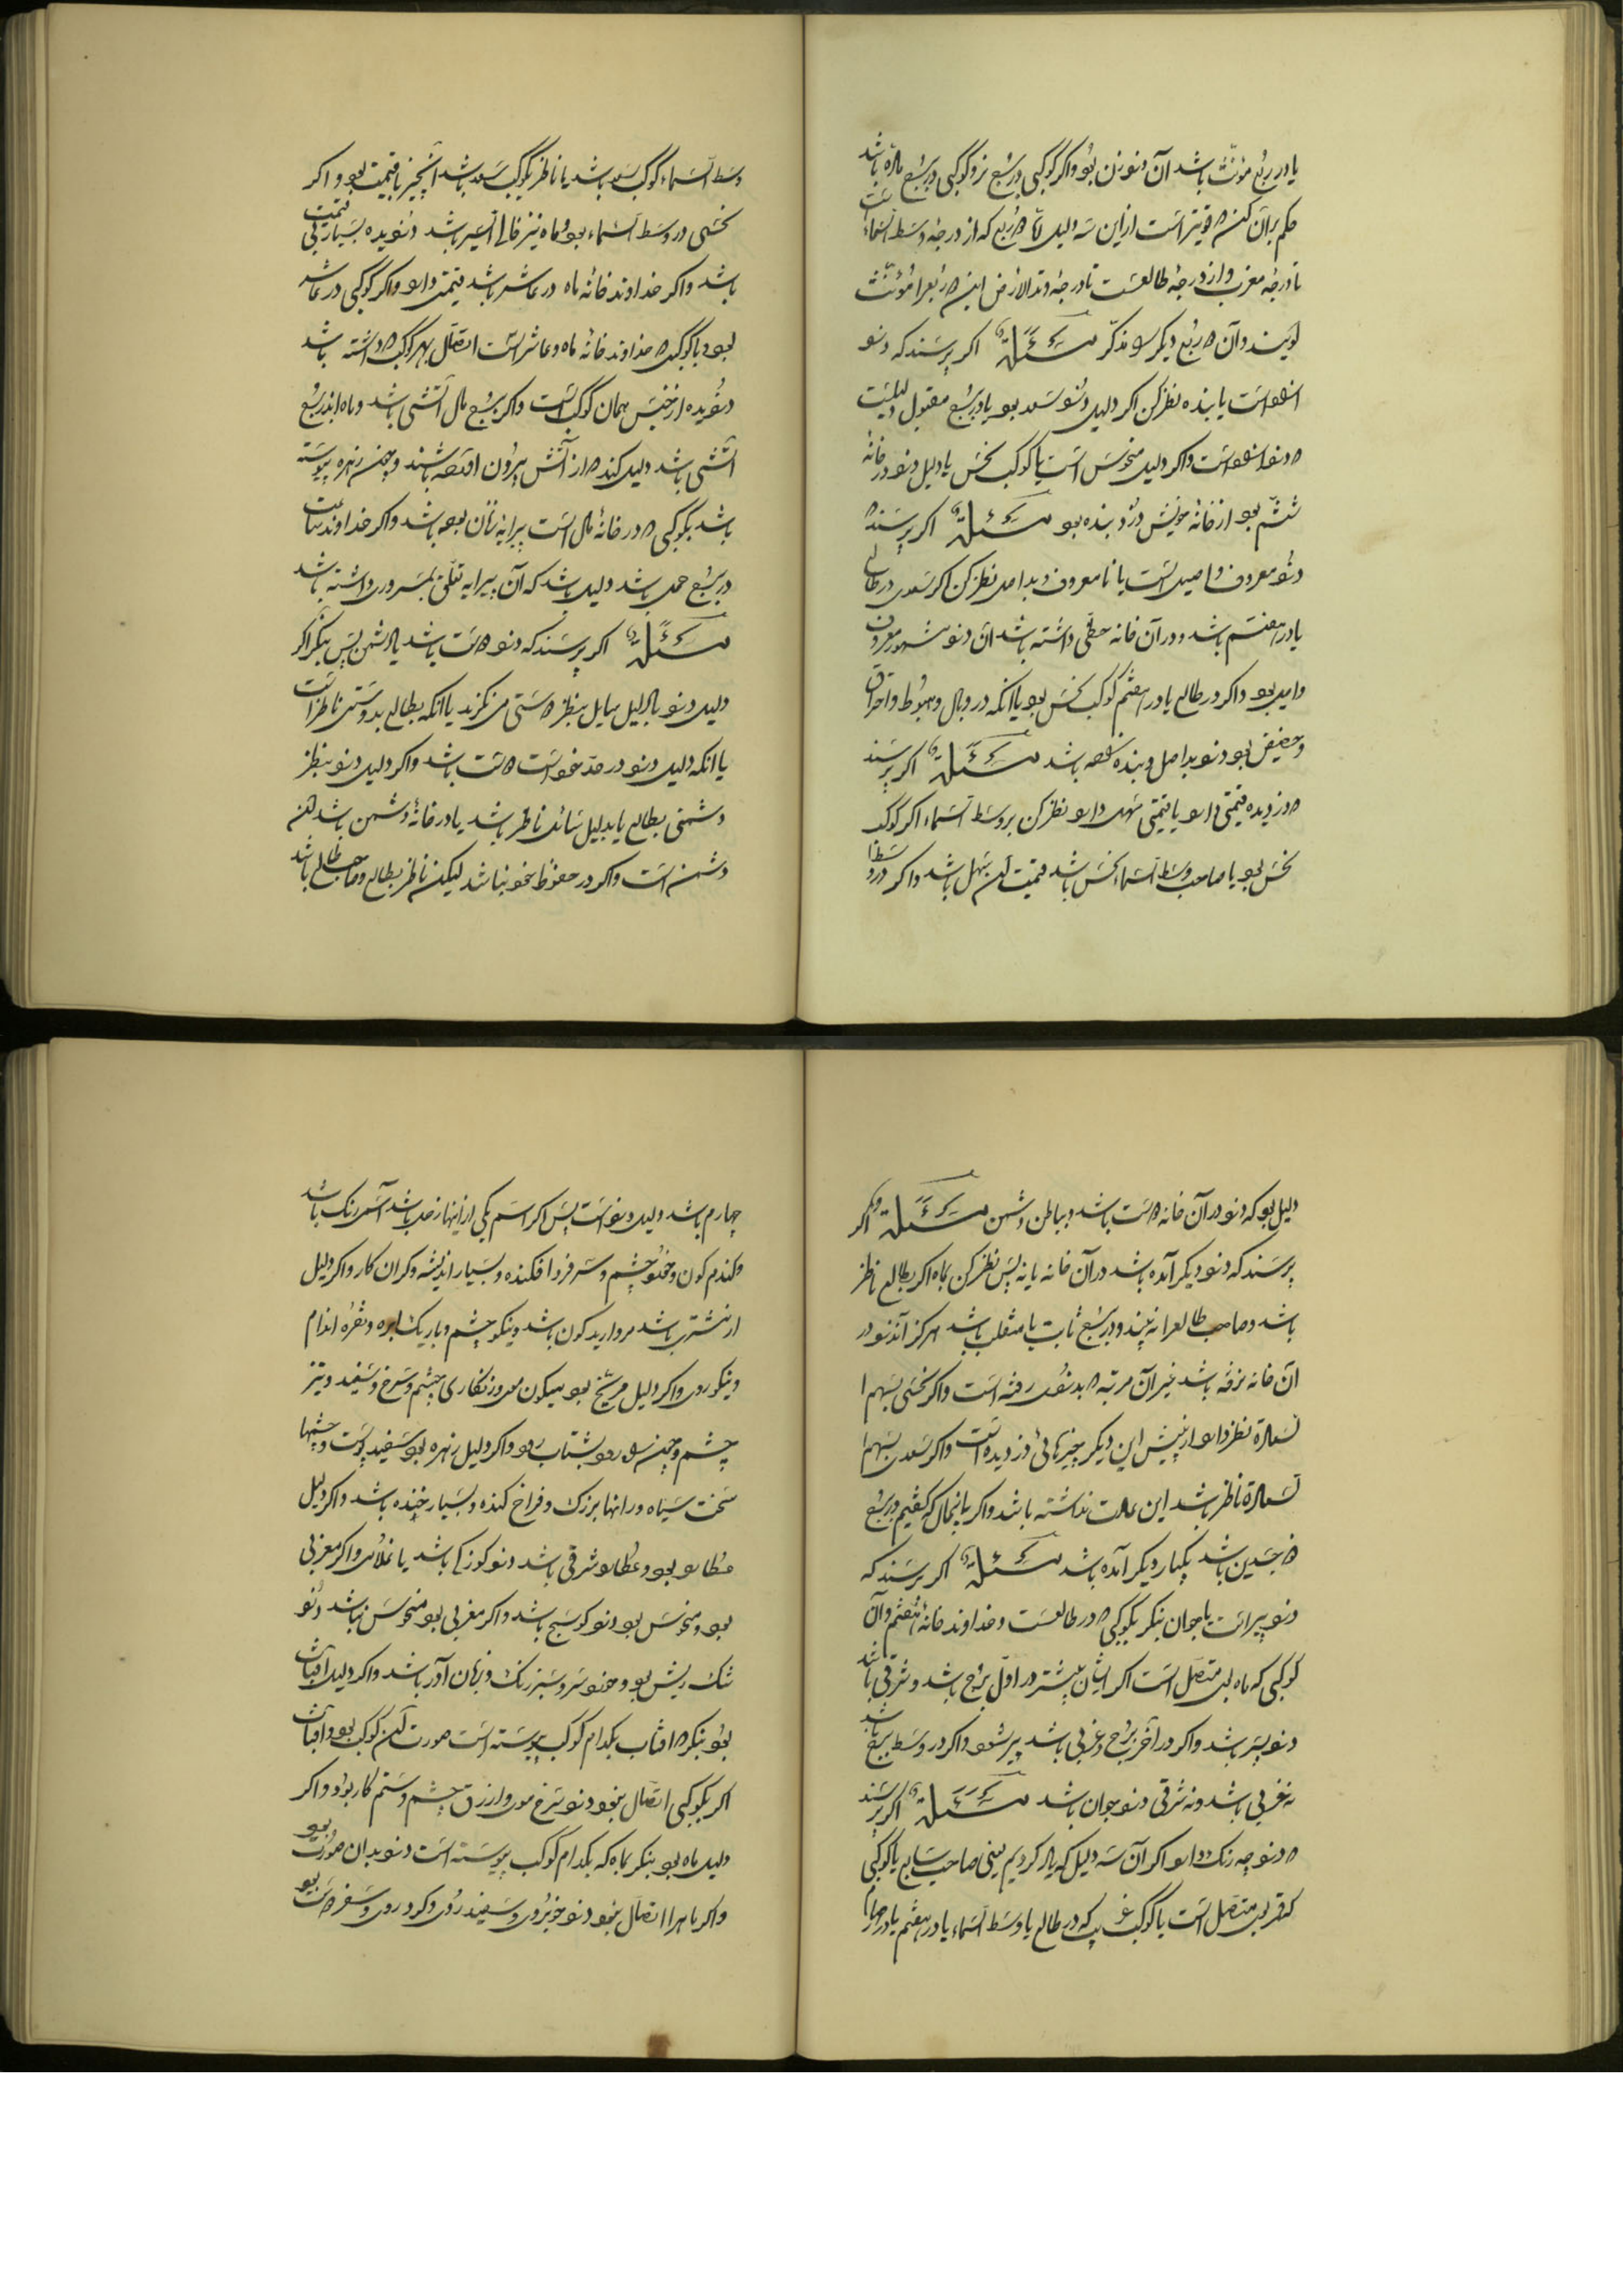 یا در ربع مؤنّث باشد آن دزد زن بود و اگر کوکبی در برج نر و کوکبی در برج ماده باشد
حکم بر آن کند که قویتر است از این سه دلیل که از درجهٔ وسط السماء
تا درجهٔ مغرب و از درجهٔ طالعست تا درجهٔ وتد الارض این دو ربع را مؤنّث
گویند و آن دو ربع دیگر را مذکّر مسئلة اگر پرسند که دزد
آزاد است یا بنده نظر کن اگر دلیل دزد سعد بود یا در برج مقبول
که دزد آزاد است و اگر دلیل منحوس است یا کوکب نحس یا دلیل دزد در خانهٔ
ششم بود از خانهٔ خویش دزد بنده بود مسئلة اگر پرسند که
دزد معروف و اصیل است یا نامعروف و بد اصل نظر کن اگر سعدی در طالع
یا در هفتم باشد و در آن خانه حظّی داشته باشد آن دزد مشهور معروف
و اصیل بود و اگر در طالع یا در هفتم کوکب نحس بود یا آنکه در وبال و هبوط و احتراق
و حضیض بود دزد بد اصل و بنده باشد مسئلة اگر پرسند
که دزدیده قیمتی دارد یا قیمتی سهل دارد نظر کن بر وسط السماء اگر کوکب
نحس بود یا صاحب وسط السماء نحس باشد قیمت آن سهل باشد و اگر در
وسط السماء کوکب سعد باشد یا ناظر بکوکب سعد باشد آنچیز با قیمت بود و اگر
نحسی در وسط السماء بود و ماه نیز خالی السیر باشد دزدیده بسیار بی قیمت
باشد و اگر خداوند خانهٔ ماه در عاشر باشد قیمتی دارد و اگر کوکبی در عاشر
بود یا کوکبی که خداوند خانهٔ ماه و عاشر است اتصال بهر کوکب که داشته باشد
دزدیده از جنس همان کوکب است و اگر برج مال آتشی باشد و ماه اندر برج
آتشی باشد دلیل کند که از آتش بیرون آورده باشند و چون زهره پیوسته
باشد بکوکبی که در خانهٔ مال است پیرایهٔ زنان بوده باشد و اگر خداوند
در برج حمل باشد دلیل باشد که آن پیرایه تعلّق بسر داشته باشد
مسئلة اگر پرسند که دزد دوست باشد یا دشمن پس بنگر اگر
دلیل دزد با دلیل سایل بنظر دوستی می نگرند یا آنکه بطالع بدوستی ناظر است
یا آنکه دلیل دزد در حدّ خود است دوست باشد و اگر دلیل دزد بنظر
دشمنی بطالع یا بدلیل سائل ناظر باشد یا در خانهٔ دشمن باشد دزد
دشمن است و اگر در حظوظ خود نباشد لیکن ناظر بطالع و صاحب طالع باشد
دلیل بود که دزد در آن خانه دوست باشد و بباطن دشمن مسئلة و اگر
پرسند که دزد دیگر آمده باشد در آن خانه یا نه پس نظر کن بماه اگر بطالع ناظر
باشد و صاحب طالع را نه بیند و در برج ثابت یا منقلب باشد هرگز آن دزد در
آن خانه نرفته باشد غیر آن مرتبه که بدزدی رفته است و اگر نحسی بسهم
السعادة نظر دارد از پیش این دیگر چیزهائی دزدیده است و اگر سعدی بسهم
السعادة ناظر باشد این عادت نداشته باشد و اگر با اینحال که گفتیم در برج
ذو جسدین باشد یکبار دیگر آمده باشد مسئلة اگر پرسند که
دزد پیر است یا جوان بنگر بکوکبی که در طالعست و خداوند خانهٔ هفتم و آن
کوکبی که ماه بدو متصل است اگر ایشان بیشتر در اوّل برج باشد و شرقی باشد
دزد پسر باشد و اگر در آخر برج و غربی باشد پیر شود و اگر در وسط برج باشد
نه غربی باشد و نه شرقی دزد جوان باشد مسئلة اگر پرسند
که دزد چه رنگ دارد اگر آن سه دلیل که یاد کردیم یعنی صاحب سابع یا کوکبی
که قمر بدو متصل است یا کوکب غریب که در طالع یا وسط السماء یا در هفتم یا در
چهارم باشد دلیل دزد است پس اگر اسم یکی از اینها زحل باشد اسمر رنگ باشد
و گندم گون و خورد چشم و سر فرو افکنده و بسیار اندیشه و گران کار و اگر دلیل
از مشتری باشد مروارید گون باشد و نیکو چشم و باریک ابرو و نقره اندام
و نیکو روی و اگر دلیل مریخ بود میگون موی و زنگاری چشم و سرخ و سفید و تیز
چشم و چون رود بشتاب رود و اگر دلیل زهره بود سفید پوست و چشمها
سخت سیاه و رانها بزرگ و فراخ کنده و بسیار خنده باشد و اگر دلیل
عطارد بود و عطارد شرقی باشد دزد کودک باشد یا و اگر مغربی
بود و منحوس بود دزد کوسج باشد و اگر مغربی بود منحوس نباشد دزد
تنک ریش بود و خورد سر و سبز رنگ و زبان آور باشد و اگر دلیل آفتاب
بود بنگر که افتاب بکدام کوکب پیوسته است صورت آن کوکب بود و آفتاب
اگر بکوکبی اتصال نبود دزد سرخ موی و ازرق چشم و ستم کار بود و اگر
دلیل ماه بود بنگر بماه که بکدام کوکب پیوسته است دزد بدان صورت بود
و اگر ماه را اتصال نبود دزد خوبروی و سفید روی و گرد روی و سفر دوست بود